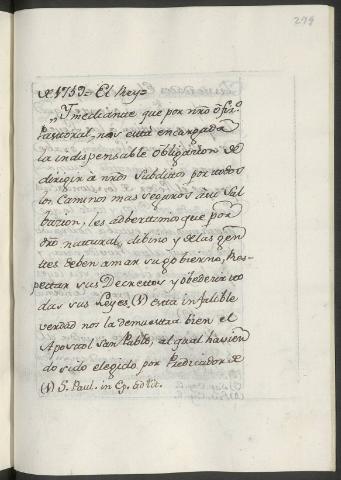 279
de 1759= El Rey=
„Y mediante que por nro ofizo.
Pastoral, nos està encargada
la indispensable obligazion de
dirigir à nros subditos por todos
los Caminos mas seguros a su Sal
bazion, les adbertimos que por
dro natural, dibino y de las gen
tes deben amar su gobierno, Res-
pectar sus Decretos y obedezer to
das sus Leyes, (1) esta infalible
verdad nos la demuestra bien el
Apostol San Pablo, al qual havien
do sido elegido por Predicador de
(1) S. Paul. in Ep. ad Tit.